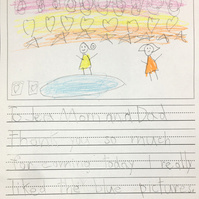 Mom and Dad
Thank you so much
for coming today I really
liked the blue picture